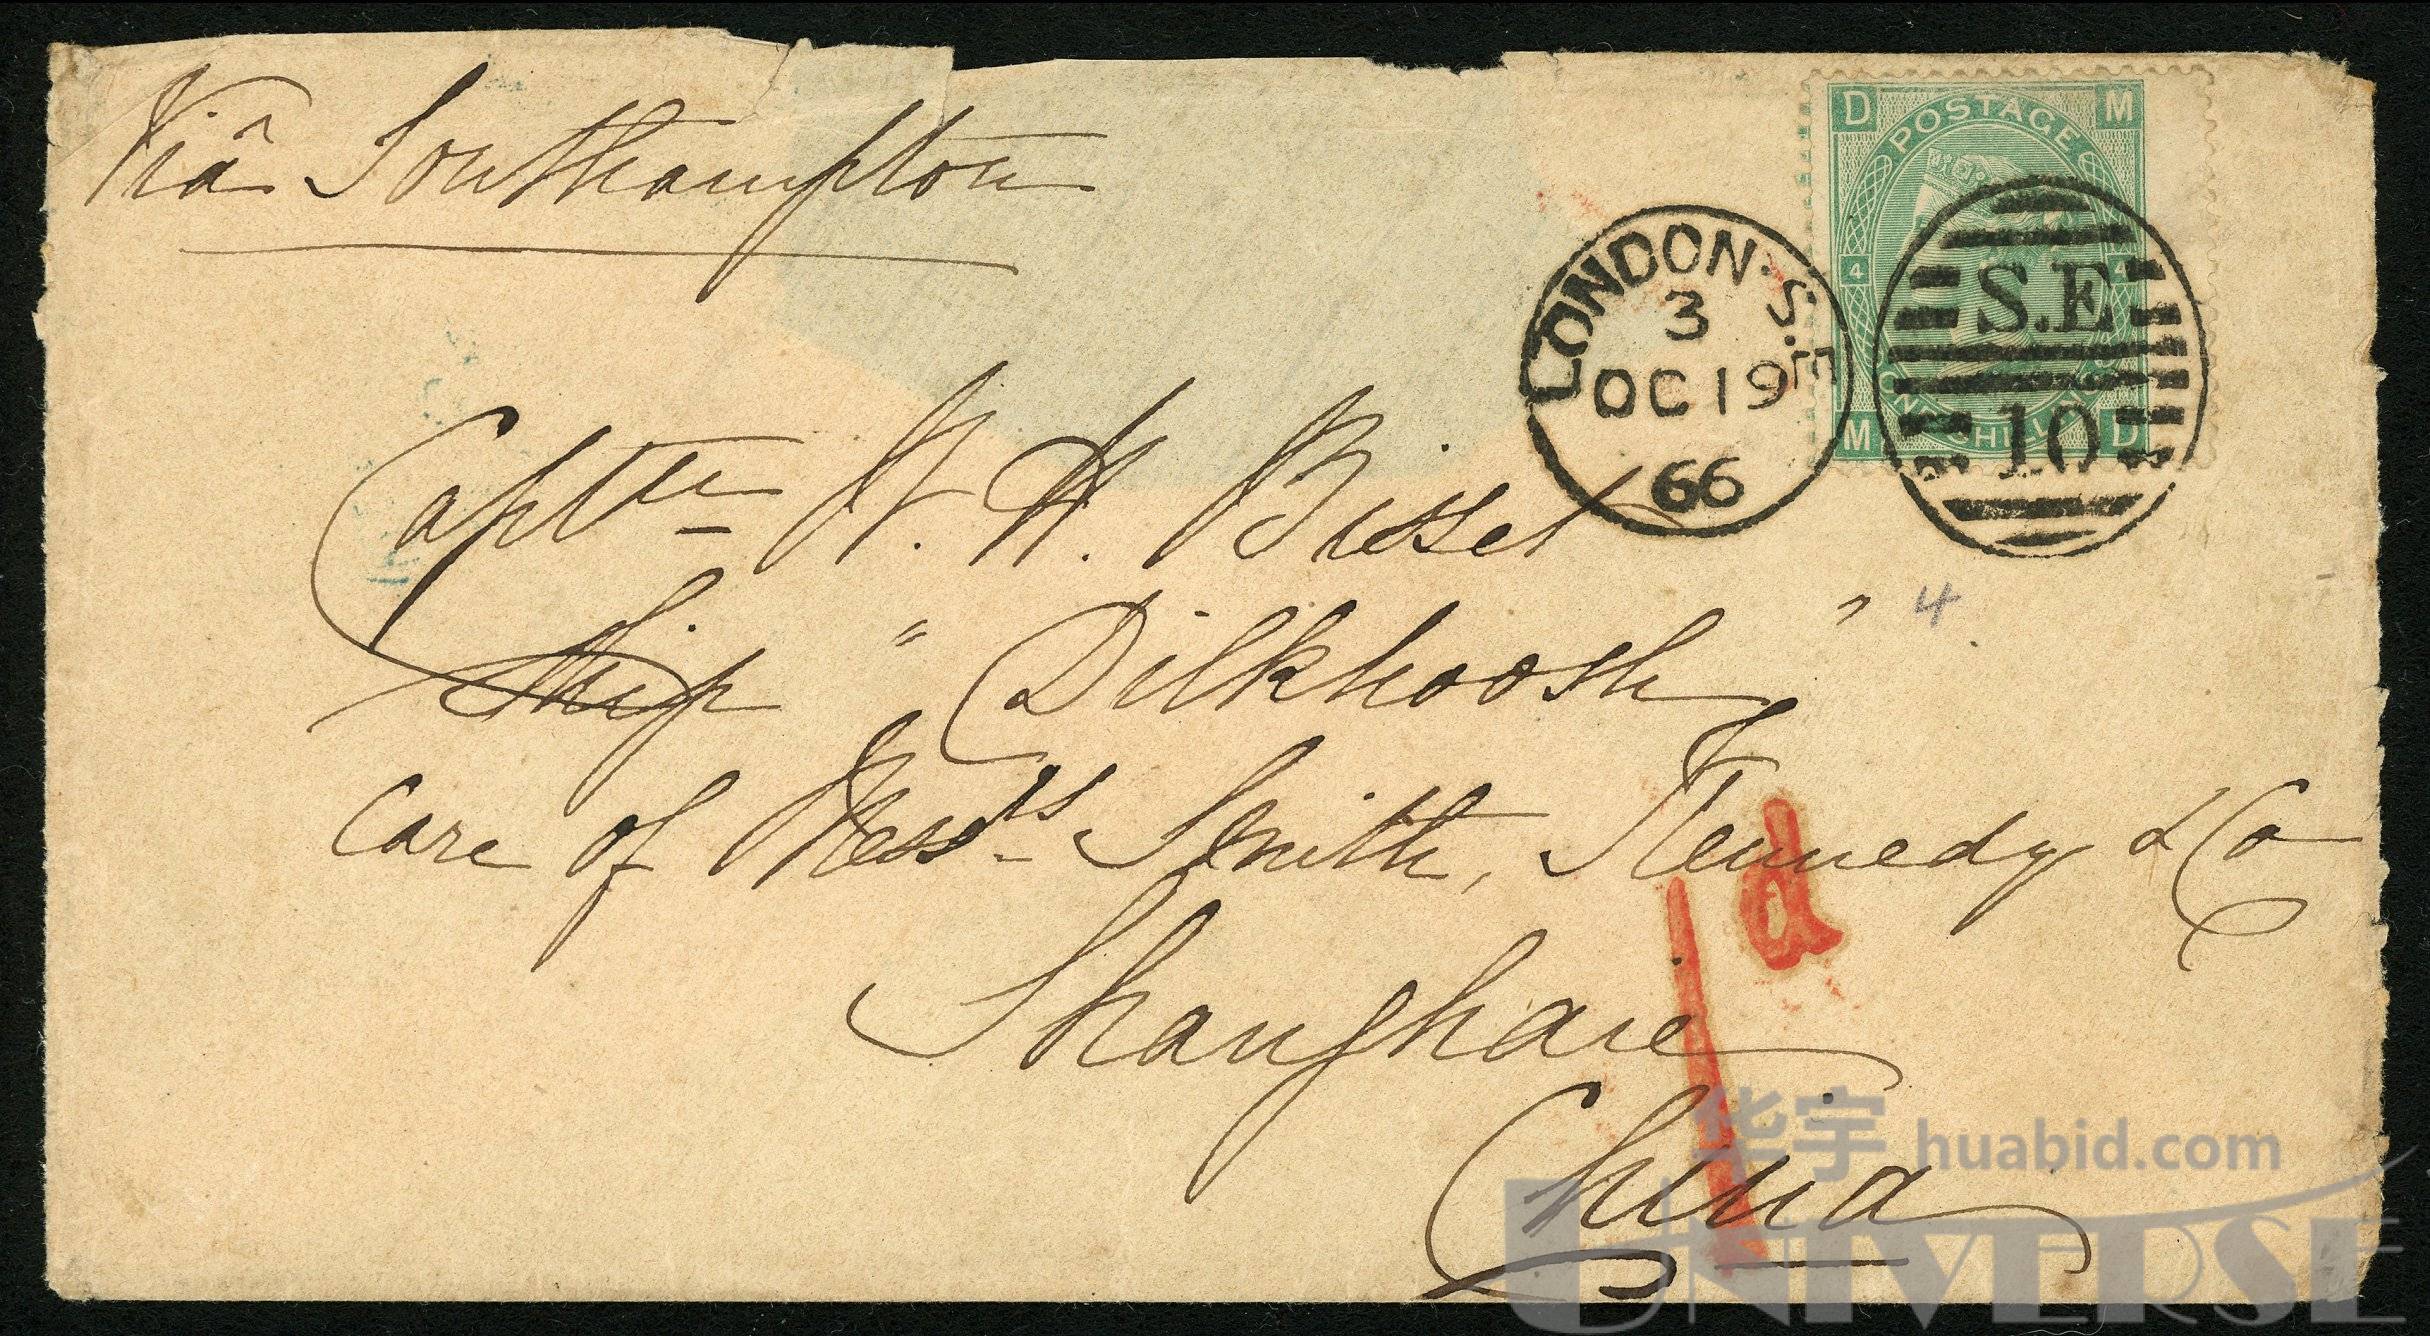 Viâ Southampton
D POSTAGE M
4 4
M ONE SHILLING D
LONDON. S.E
3
OC 19
66
S.E
10
Captn W. H. Bisset
Ship "Dilkhoosh"
4
care of Messrs Smith, Kennedy & Co
1d
Shanghaie
China
华宇 huabid.com
UNIVERSE